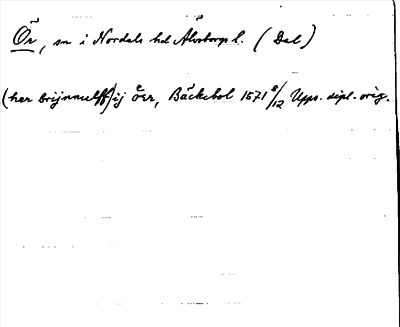 Ör, sn i Nordals hd Älvsborgs l. (Dal)
(her brijnnulff) ij öer, Bäckebol 1571 8/12 Upps. dipl. orig.